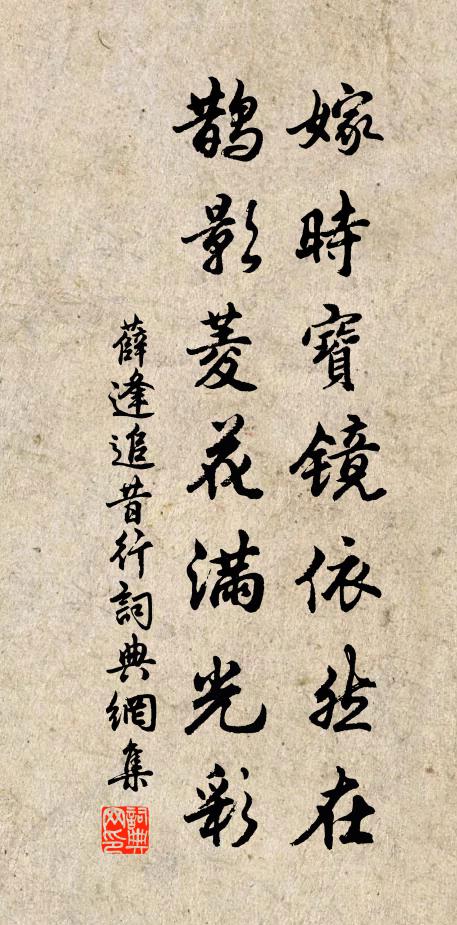 嫁時寶鏡依然在
鵲影菱花滿光彩
薛逢追昔行詞典網集
詞典网印